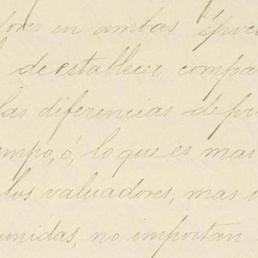 dores en ambas époc
de establecer compa
las diferencias de pr
empo, ó, lo que es mas
los valuadores, mas
unidas, no importan